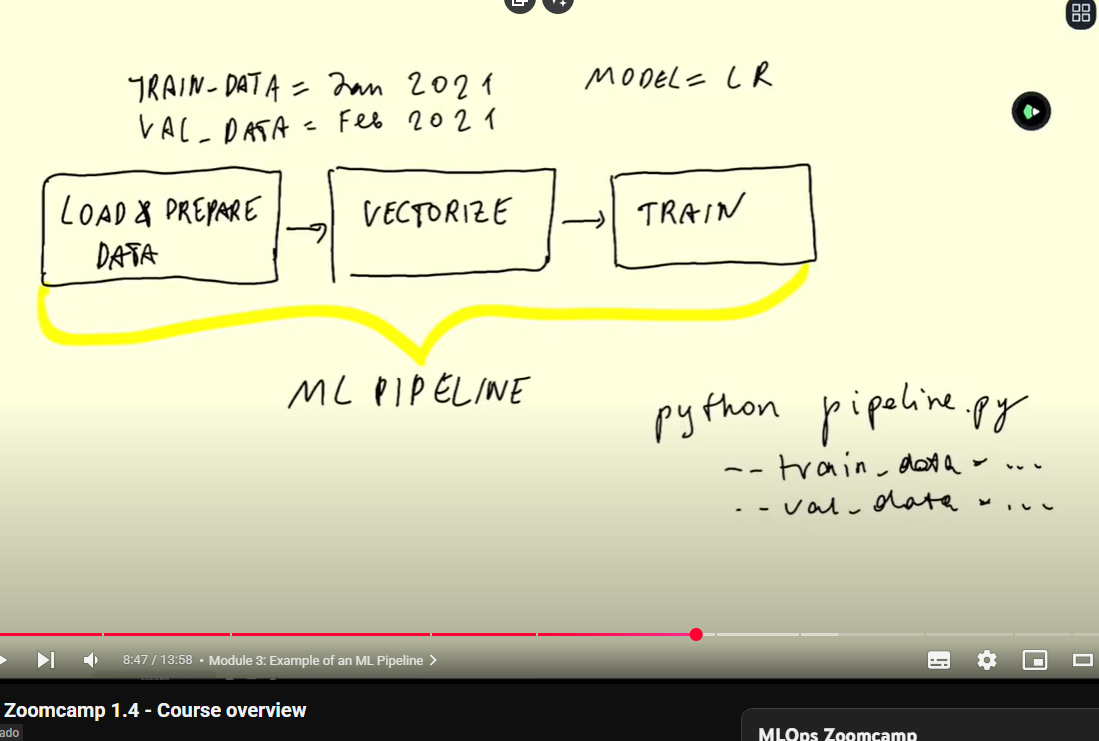 TRAIN-DATA = Jan 2021
MODEL = LR
VAL_DATA = Feb 2021
LOAD & PREPARE
DATA
VECTORIZE
TRAIN
ML PIPELINE
python pipeline.py
--train_data = ...
--val_data = ...
8:47 / 13:58 • Module 3: Example of an ML Pipeline >
Zoomcamp 1.4 - Course overview
ado
MLOps Zoomcamp